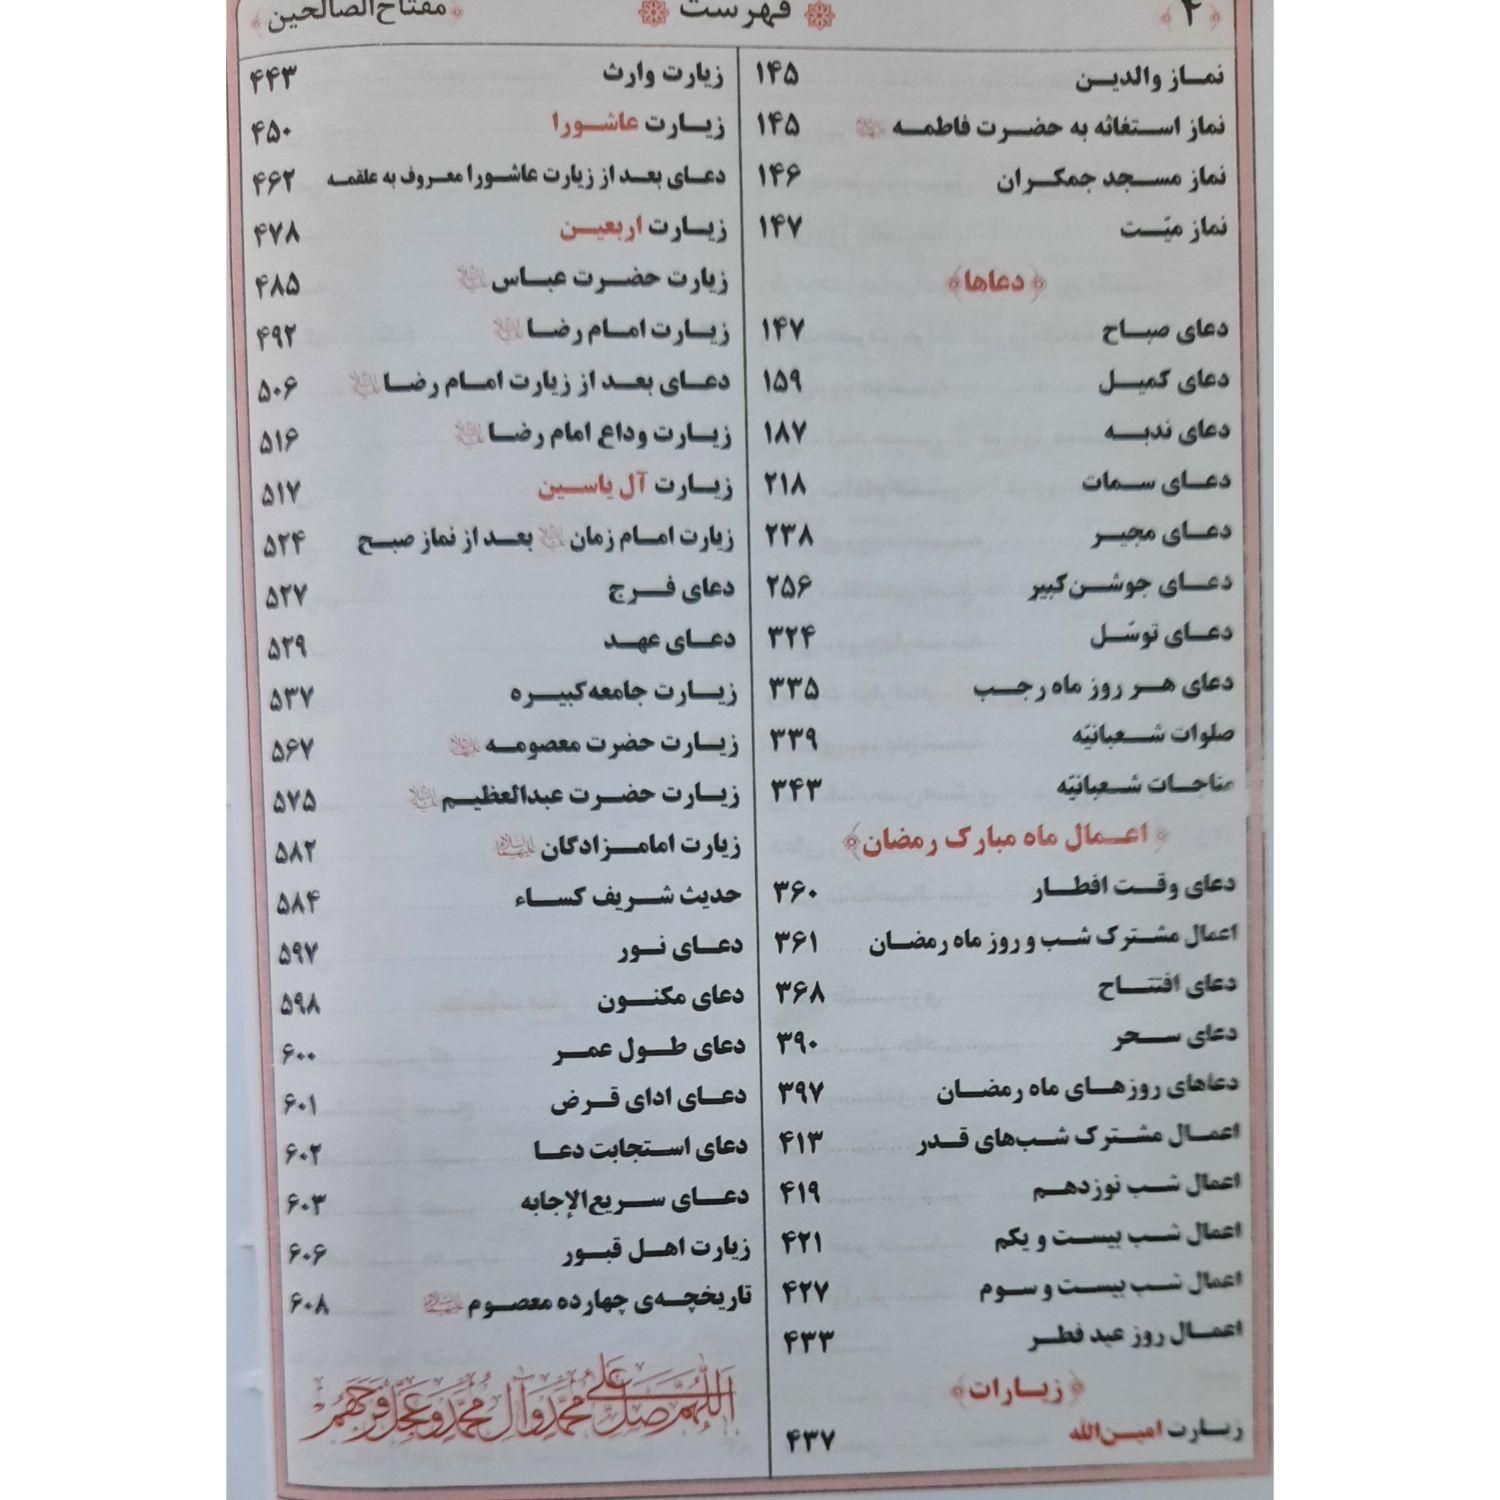 ۴
فهرست
مفتاح‌الصالحین
نماز والدین ۱۴۵
نماز استغاثه به حضرت فاطمه ۱۴۵
نماز مسجد جمکران ۱۴۶
نماز میّت ۱۴۷
دعاها
دعای صباح ۱۴۷
دعای کمیل ۱۵۹
دعای ندبه ۱۸۷
دعای سمات ۲۱۸
دعای مجیر ۲۳۸
دعای جوشن‌کبیر ۲۵۶
دعای توسّل ۳۲۴
دعای هر روز ماه رجب ۳۳۵
صلوات شعبانیّه ۳۳۹
مناجات شعبانیّه ۳۴۳
اعمال ماه مبارک رمضان
دعای وقت افطار ۳۶۰
اعمال مشترک شب و روز ماه رمضان ۳۶۱
دعای افتتاح ۳۶۸
دعای سحر ۳۹۰
دعاهای روزهای ماه رمضان ۳۹۷
اعمال مشترک شب‌های قدر ۴۱۳
اعمال شب نوزدهم ۴۱۹
اعمال شب بیست و یکم ۴۲۱
اعمال شب بیست و سوم ۴۲۷
اعمال روز عید فطر ۴۳۳
زیارات
زیارت امین‌الله ۴۳۷
زیارت وارث ۴۴۳
زیارت عاشورا ۴۵۰
دعای بعد از زیارت عاشورا معروف به علقمه ۴۶۲
زیارت اربعین ۴۷۸
زیارت حضرت عباس ۴۸۵
زیارت امام رضا ۴۹۲
دعای بعد از زیارت امام رضا ۵۰۶
زیارت وداع امام رضا ۵۱۶
زیارت آل یاسین ۵۱۷
زیارت امام زمان بعد از نماز صبح ۵۲۴
دعای فرج ۵۲۷
دعای عهد ۵۲۹
زیارت جامعه‌کبیره ۵۳۷
زیارت حضرت معصومه ۵۶۷
زیارت حضرت عبدالعظیم ۵۷۵
زیارت امامزادگان ۵۸۲
حدیث شریف کساء ۵۸۴
دعای نور ۵۹۷
دعای مکنون ۵۹۸
دعای طول عمر ۶۰۰
دعای ادای قرض ۶۰۱
دعای استجابت دعا ۶۰۲
دعای سریع‌الإجابه ۶۰۳
زیارت اهل قبور ۶۰۶
تاریخچه‌ی چهارده معصوم ۶۰۸
اللّهمّ صلّ علی محمّد وآل محمّد وعجّل فرجهم